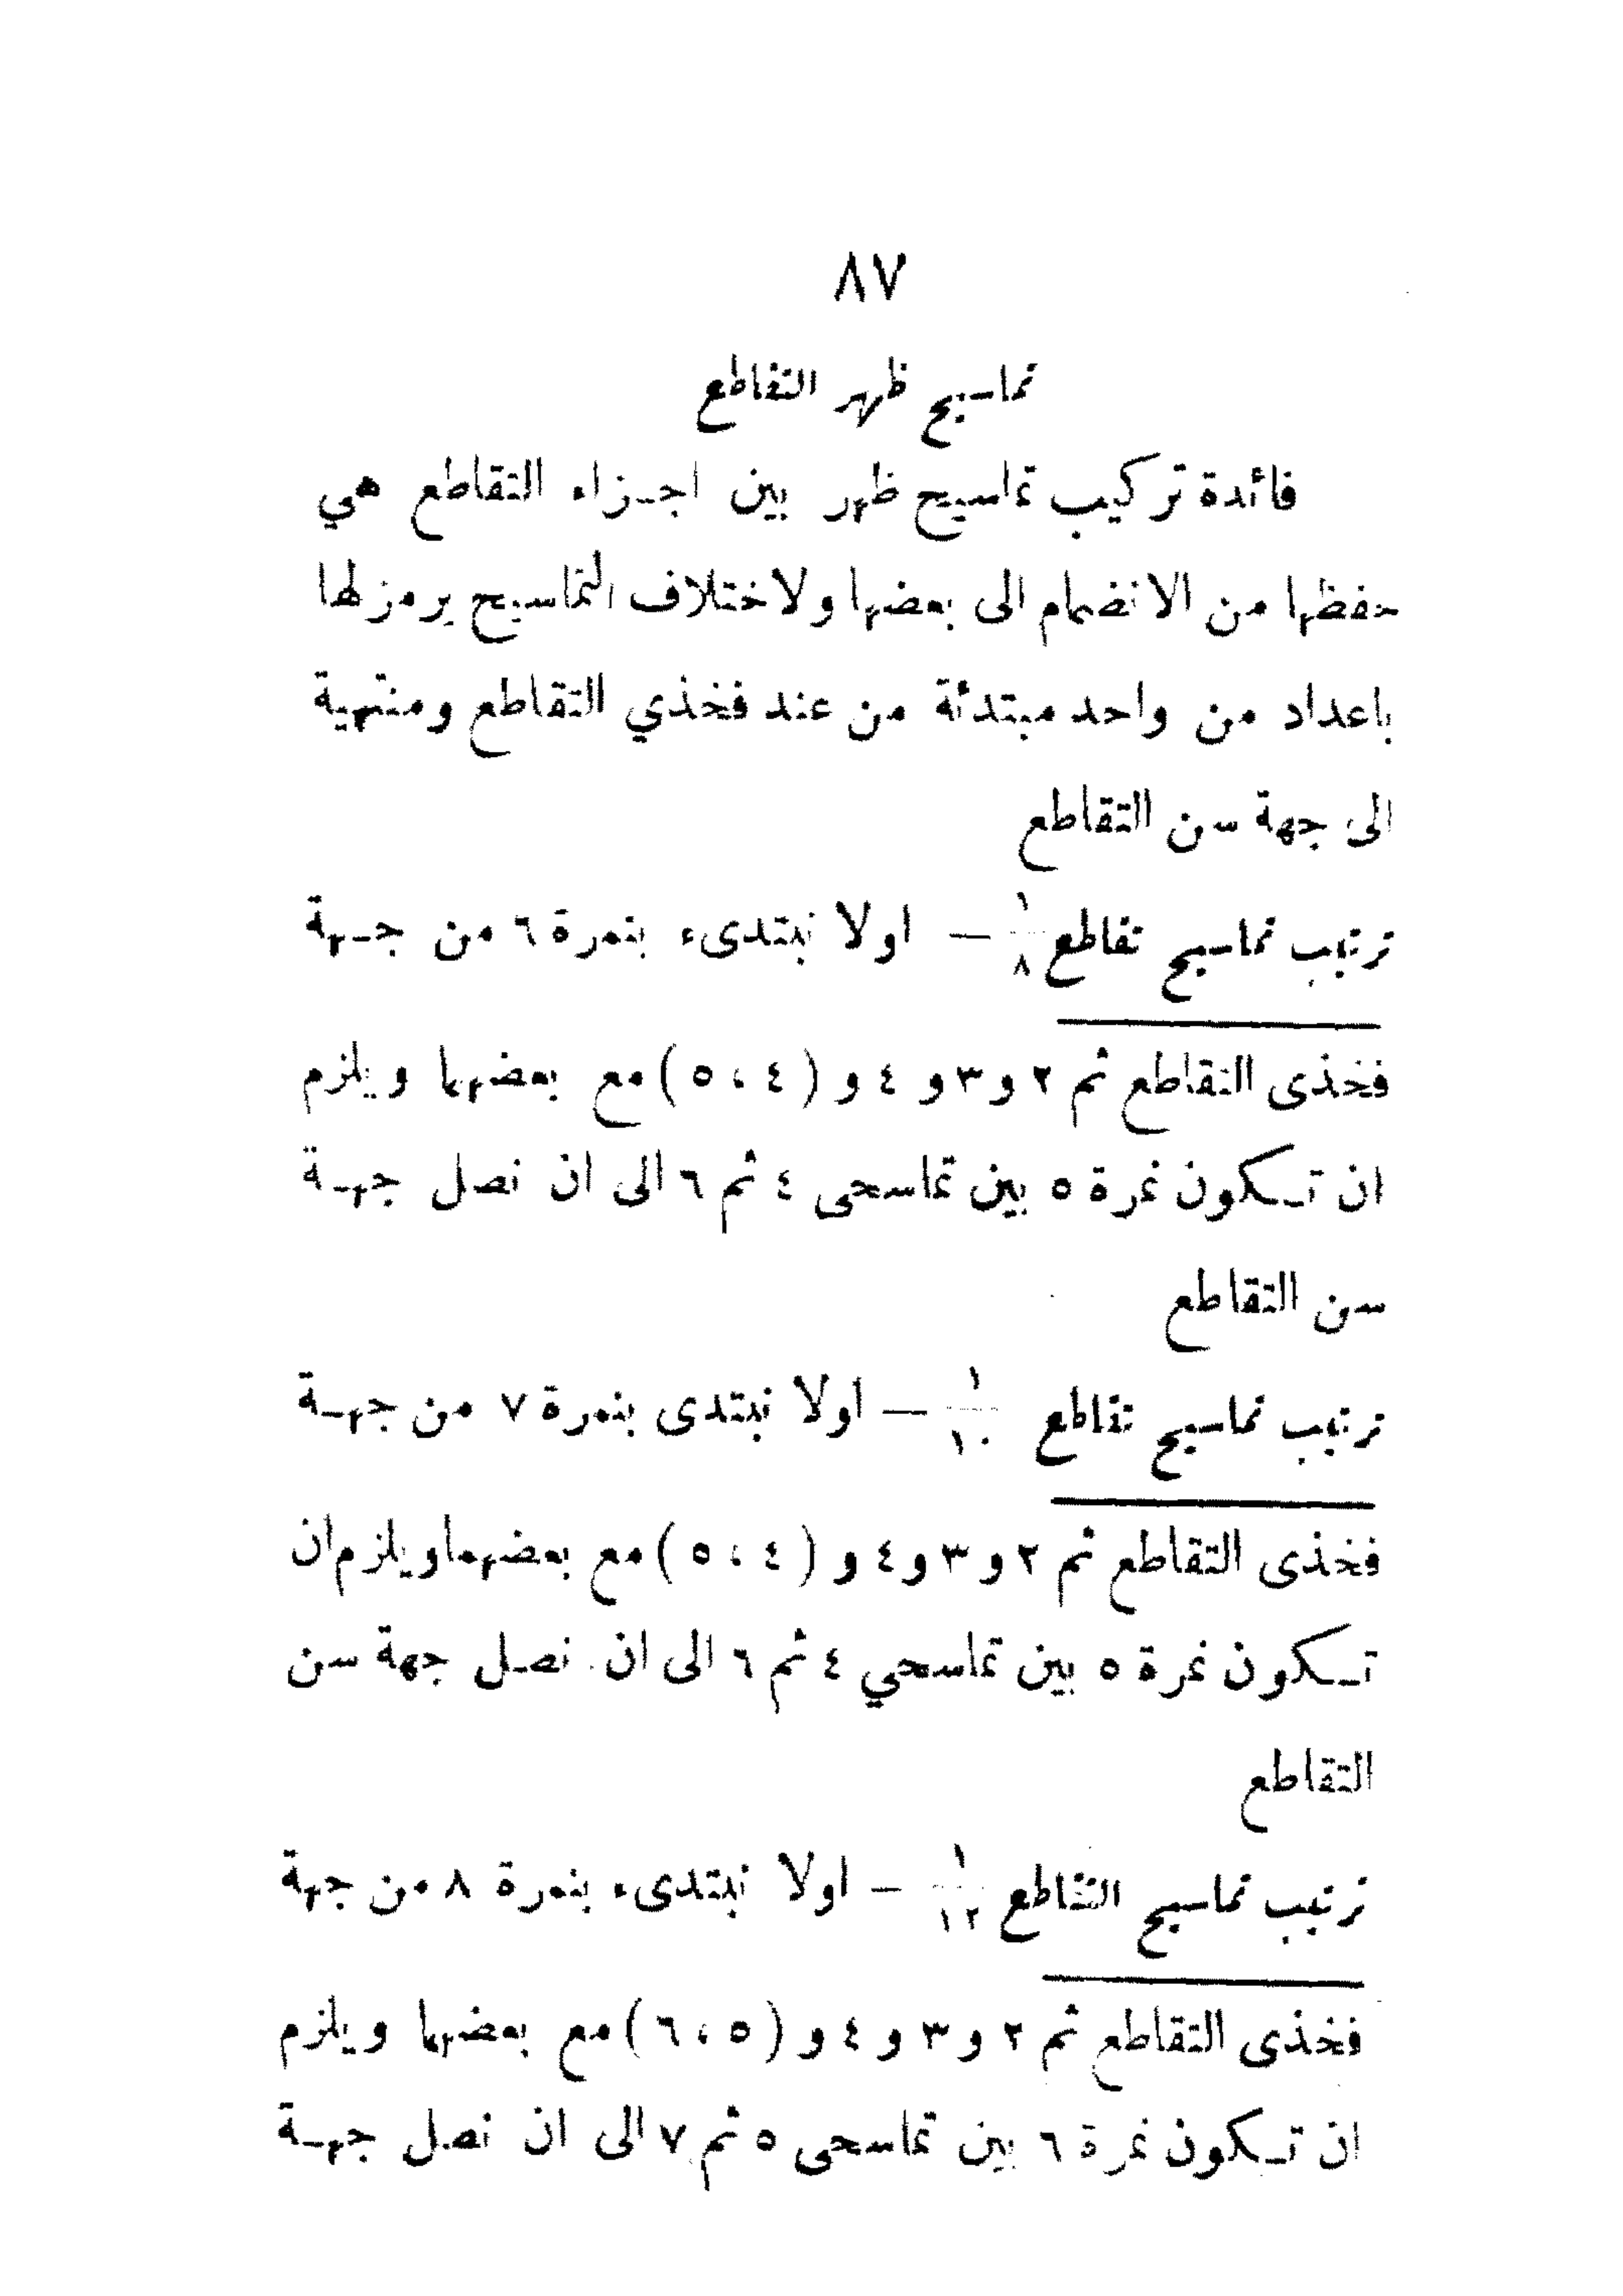 ٨٧
تماسيح ظهر التقاطع
فائدة تركيب تماسيح ظهر بين اجـزاء التقاطع هي
حفظها من الانضمام الى بعضها ولاختلاف التماسيح يرمز لها
باعداد من واحد مبتدئة من عند فخذي التقاطع ومنتهية
الى جهة سن التقاطع
ترتيب تماسيح تقاطع ١/٨ — اولا نبتدىء بنمرة ٦ من جـهة
فخذى التقاطع ثم ٢ و ٣ و ٤ و ( ٤ ، ٥ ) مع بعضهما ويلزم
ان تـكون نمرة ٥ بين تماسحى ٤ ثم ٦ الى ان نصل جهـة
سن التقاطع
ترتيب تماسيح تقاطع ١/١٠ — اولا نبتدى بنمرة ٧ من جهـة
فخذى التقاطع ثم ٢ و ٣ و ٤ و ( ٤ ، ٥ ) مع بعضهما ويلزم ان
تـكون نمرة ٥ بين تماسحي ٤ ثم ٦ الى ان نصل جهة سن
التقاطع
ترتيب تماسيح التقاطع ١/١٢ — اولا نبتدىء بنمرة ٨ من جهة
فخذى التقاطع ثم ٢ و ٣ و ٤ و ( ٥ ، ٦ ) مع بعضهما ويلزم
ان تـكون نمرة ٦ بين تماسحى ٥ ثم ٧ الى ان نصل جهـة